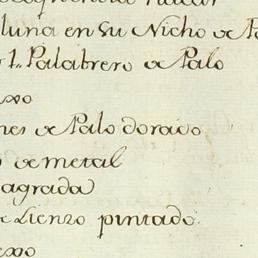 luna en su Nicho de
1 Palabrero de Palo
exo
nes de Palo dorado
de metal
agrada
de Lienzo pintado
exo